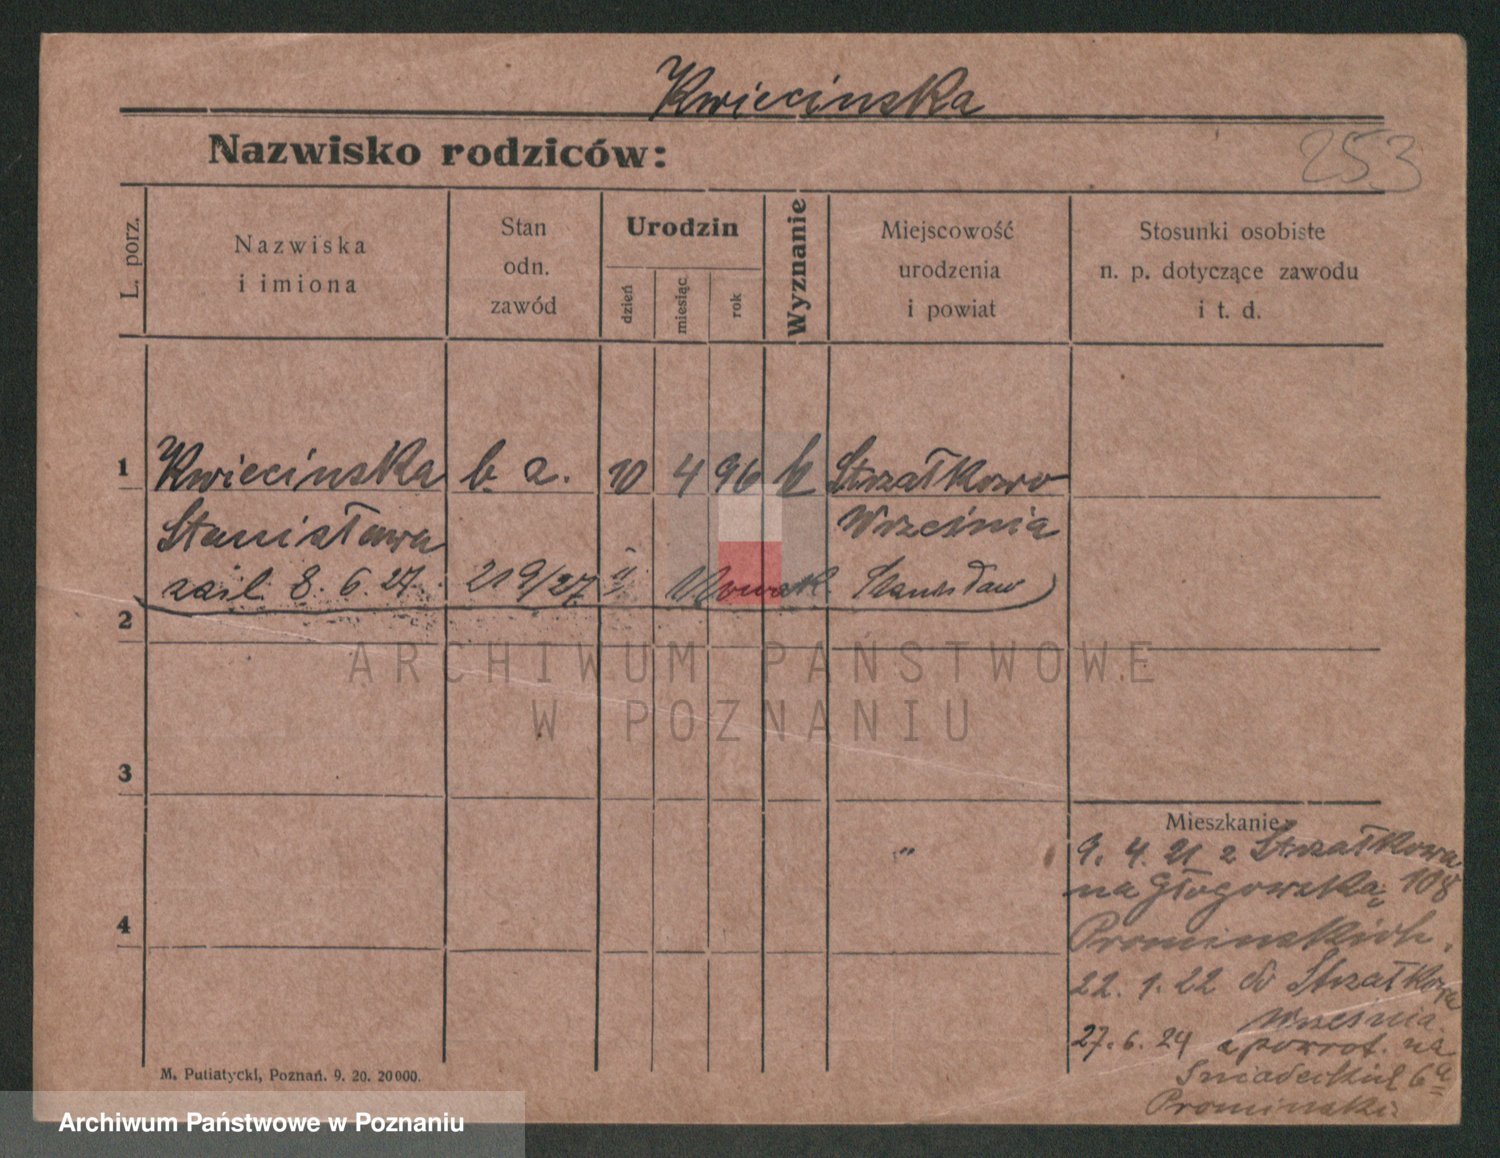 Kwiecinska
Nazwisko rodziców:
253
L. porz.
Nazwiska
i imiona
Stan
odn.
zawód
Urodzin
dzień
miesiąc
rok
Wyznanie
Miejscowość
urodzenia
i powiat
Stosunki osobiste
n. p. dotyczące zawodu
i t. d.
1 Kwiecinska b. z. 10 4 96 k Strzałkowo
Stanisława Września
zaśl. 8. 6. 27. 219/27 II Nowak Stanisław
2
ARCHIWUM PAŃSTWOWE
W POZNANIU
3
Mieszkanie
9. 4. 21 z Strzałkowa
na Głogowską 108
4
Prominskich.
22. 1. 22 do Strzałkowa
Września
27. 6. 24 z powrot. na
Śniadeckich 6a
Prominski
M. Putiatycki, Poznań. 9. 20. 20000.
Archiwum Państwowe w Poznaniu